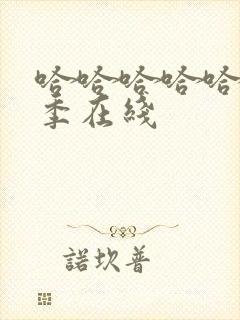 哈哈哈哈哈
季在綫
諾坎普